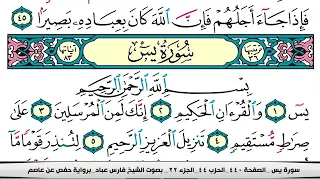 فَإِذَا جَآءَ أَجَلُهُمْ فَإِنَّ ٱللَّهَ كَانَ بِعِبَادِهِۦ بَصِيرًۢا ٤٥
سُورَةُ يسٓ
بِسْمِ ٱللَّهِ ٱلرَّحْمَٰنِ ٱلرَّحِيمِ
يسٓ ١ وَٱلْقُرْءَانِ ٱلْحَكِيمِ ٢ إِنَّكَ لَمِنَ ٱلْمُرْسَلِينَ ٣ عَلَىٰ
صِرَٰطٍ مُّسْتَقِيمٍ ٤ تَنزِيلَ ٱلْعَزِيزِ ٱلرَّحِيمِ ٥ لِتُنذِرَ قَوْمًا مَّآ
سورة يس _ الصفحة ٤٤٠ _ الحزب ٤٤ _ الجزء ٢٢ _ بصوت الشيخ فارس عباد _ برواية حفص عن عاصم